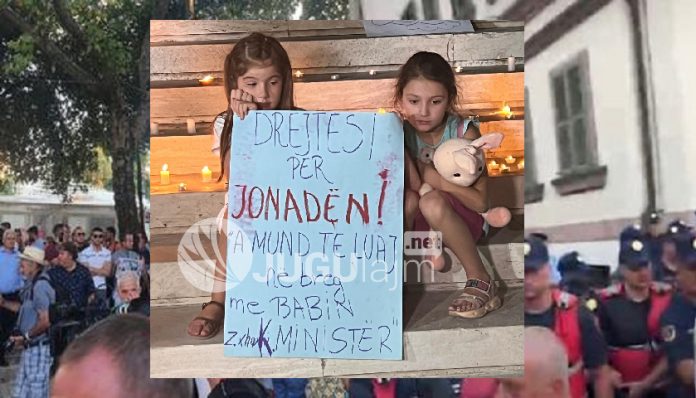 DREJTESI
PËR
JONADËN!
"A MUND TE LUAJ
ne breg
me BABIN
KMINISTËR"
JUGUlajm.net